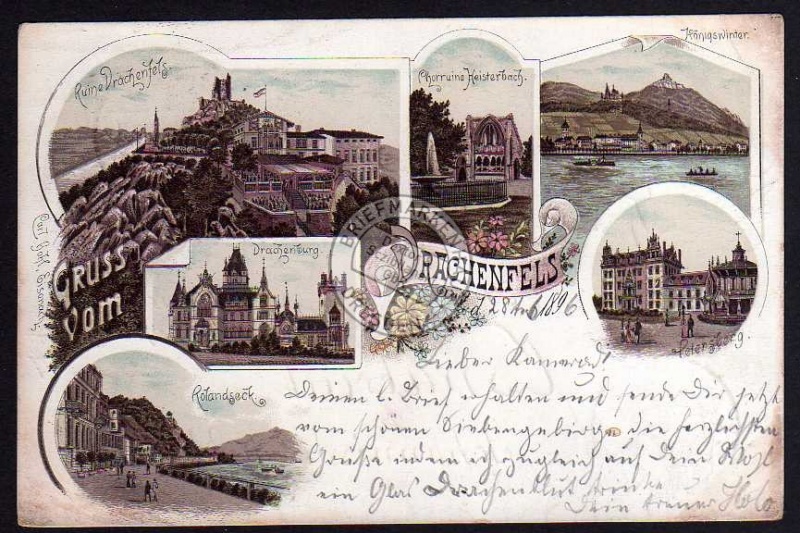 Ruine Drachenfels.
Chorruine Heisterbach.
Königswinter.
Drachenburg.
GRUSS
vom
DRACHENFELS
Petersberg.
Rolandseck.
BRIEFMARKEN
d. 28 1896
Lieber Kamerad!
Deinen l. Brief erhalten und sende Dir jetzt
vom schönen Siebengebirge die herzlichsten
Grüße indem ich zugleich auf Dein Wohl
ein Glas Drachenblut trinke
Dein treuer